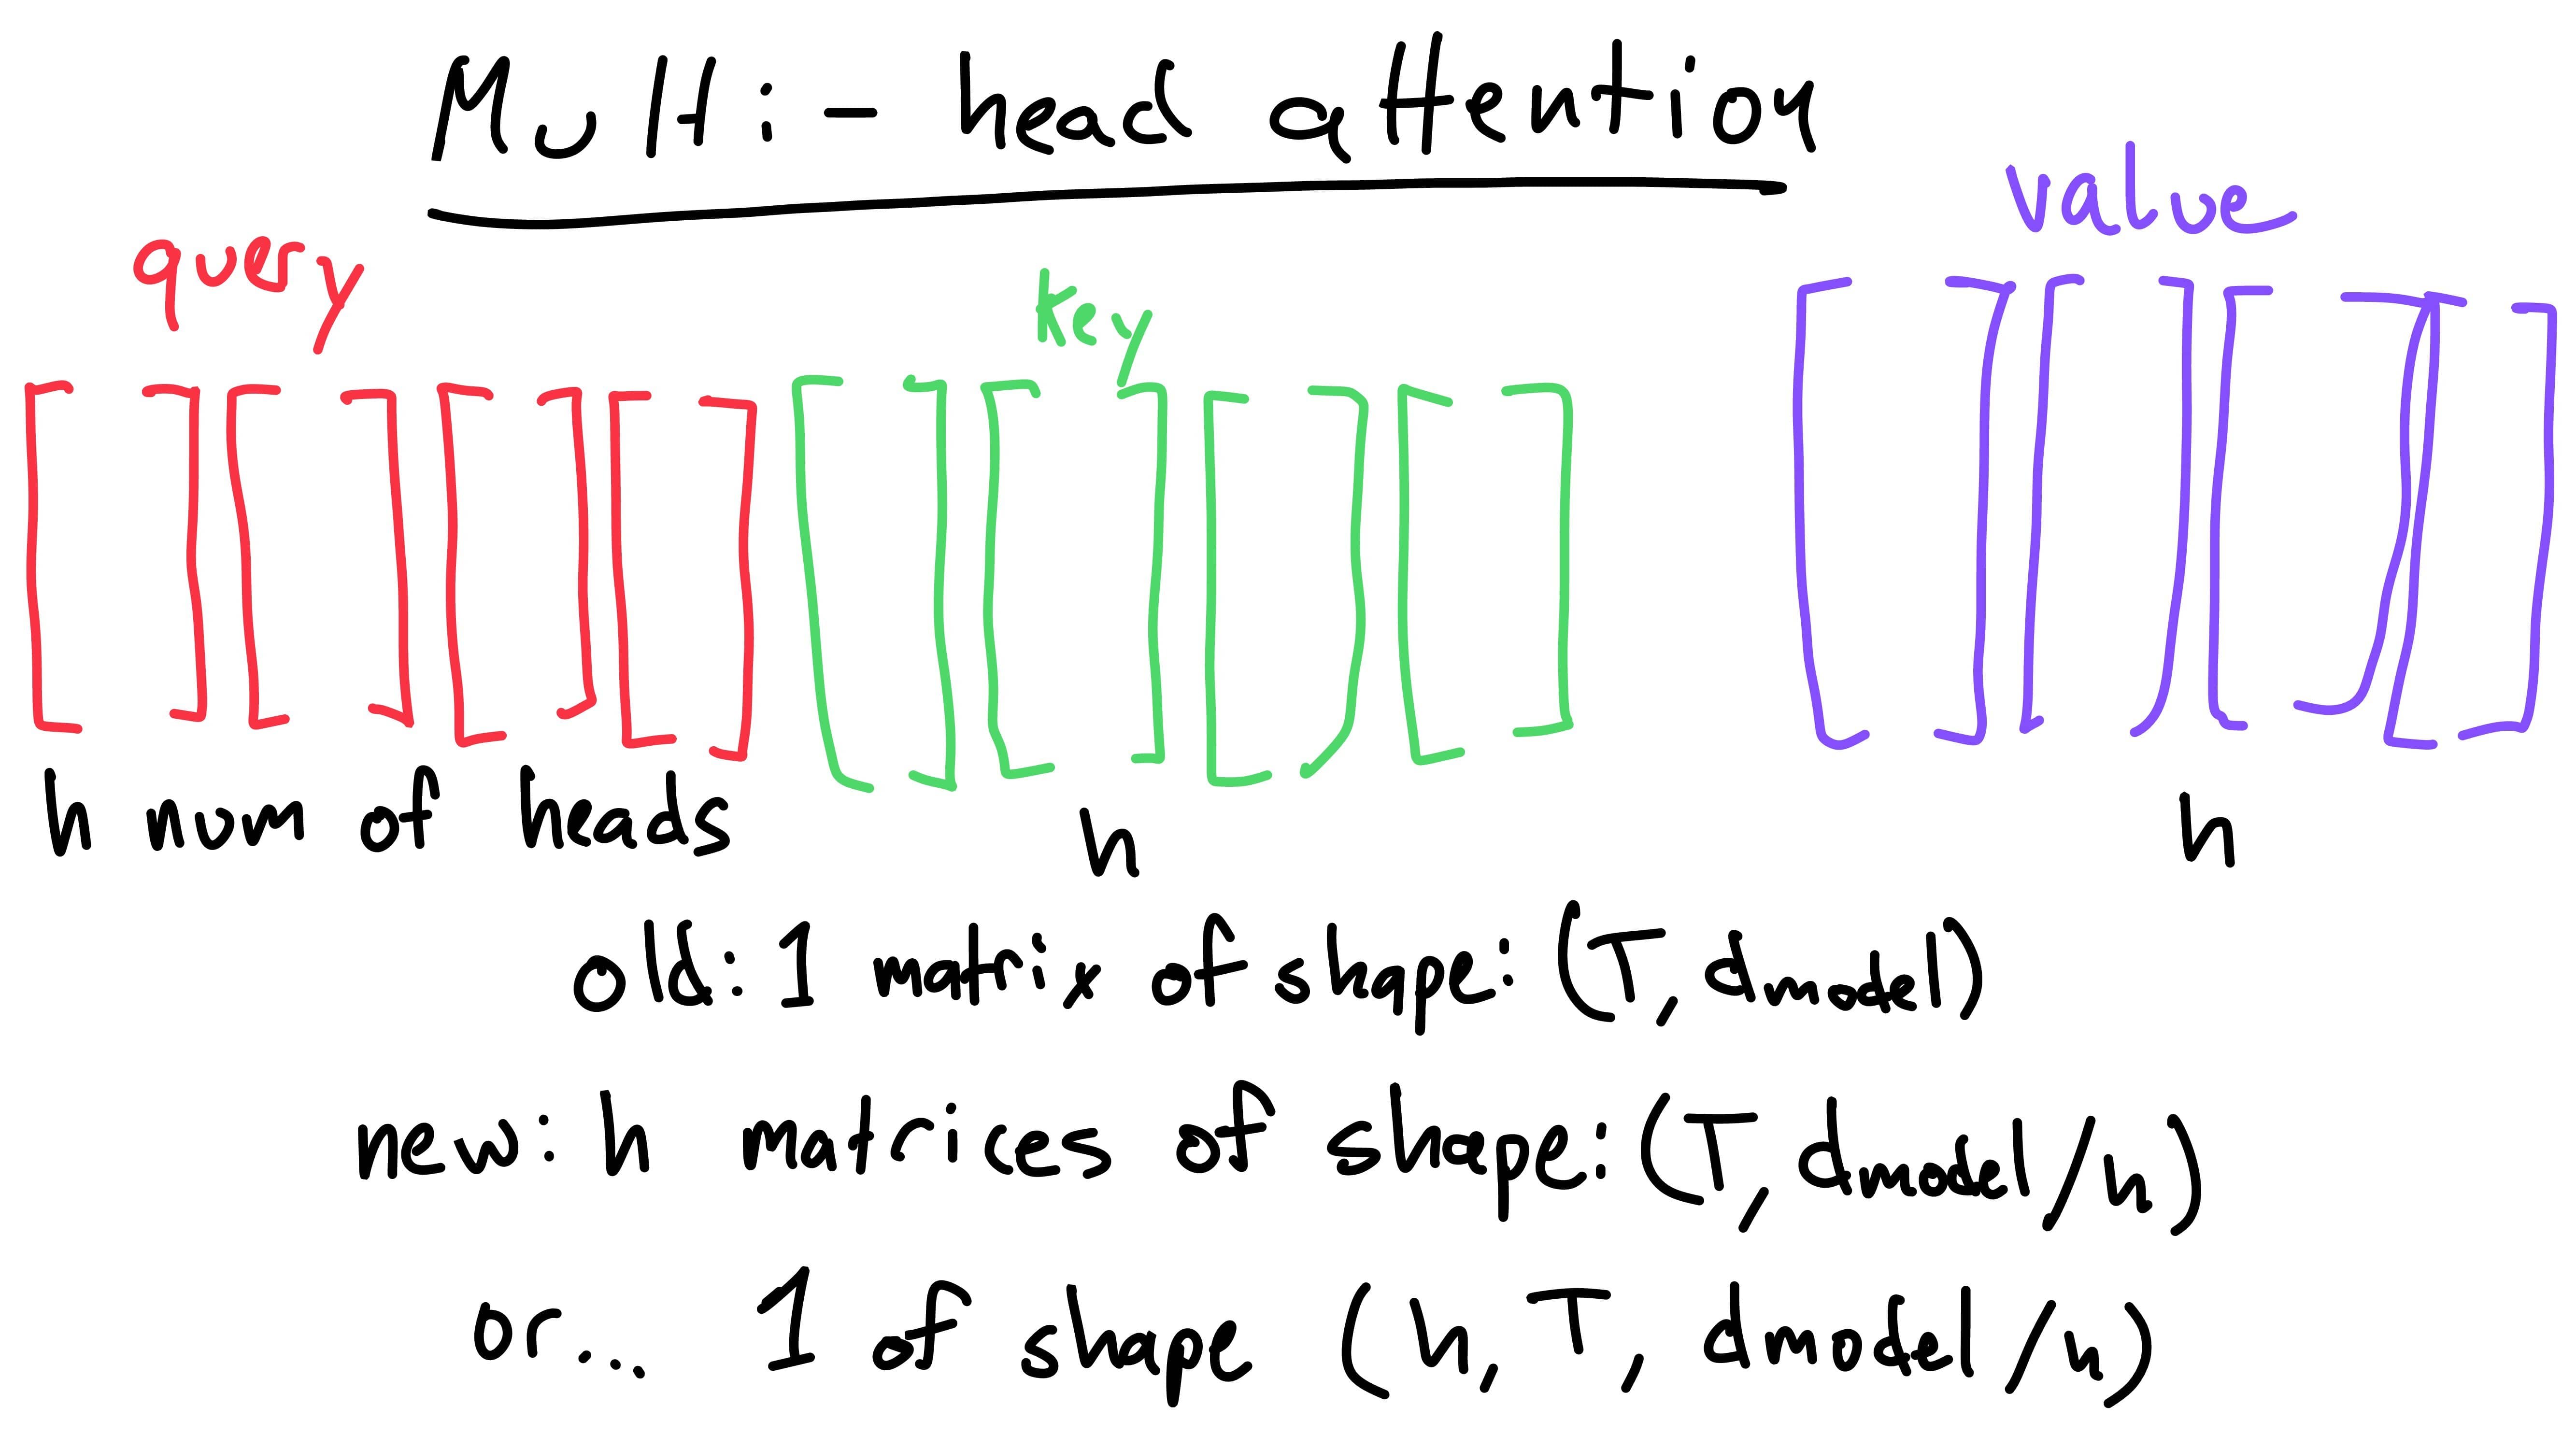 Multi-head attention
query
key
value
h num of heads
h
h
old: 1 matrix of shape: (T, dmodel)
new: h matrices of shape: (T, dmodel/h)
or... 1 of shape (h, T, dmodel/h)